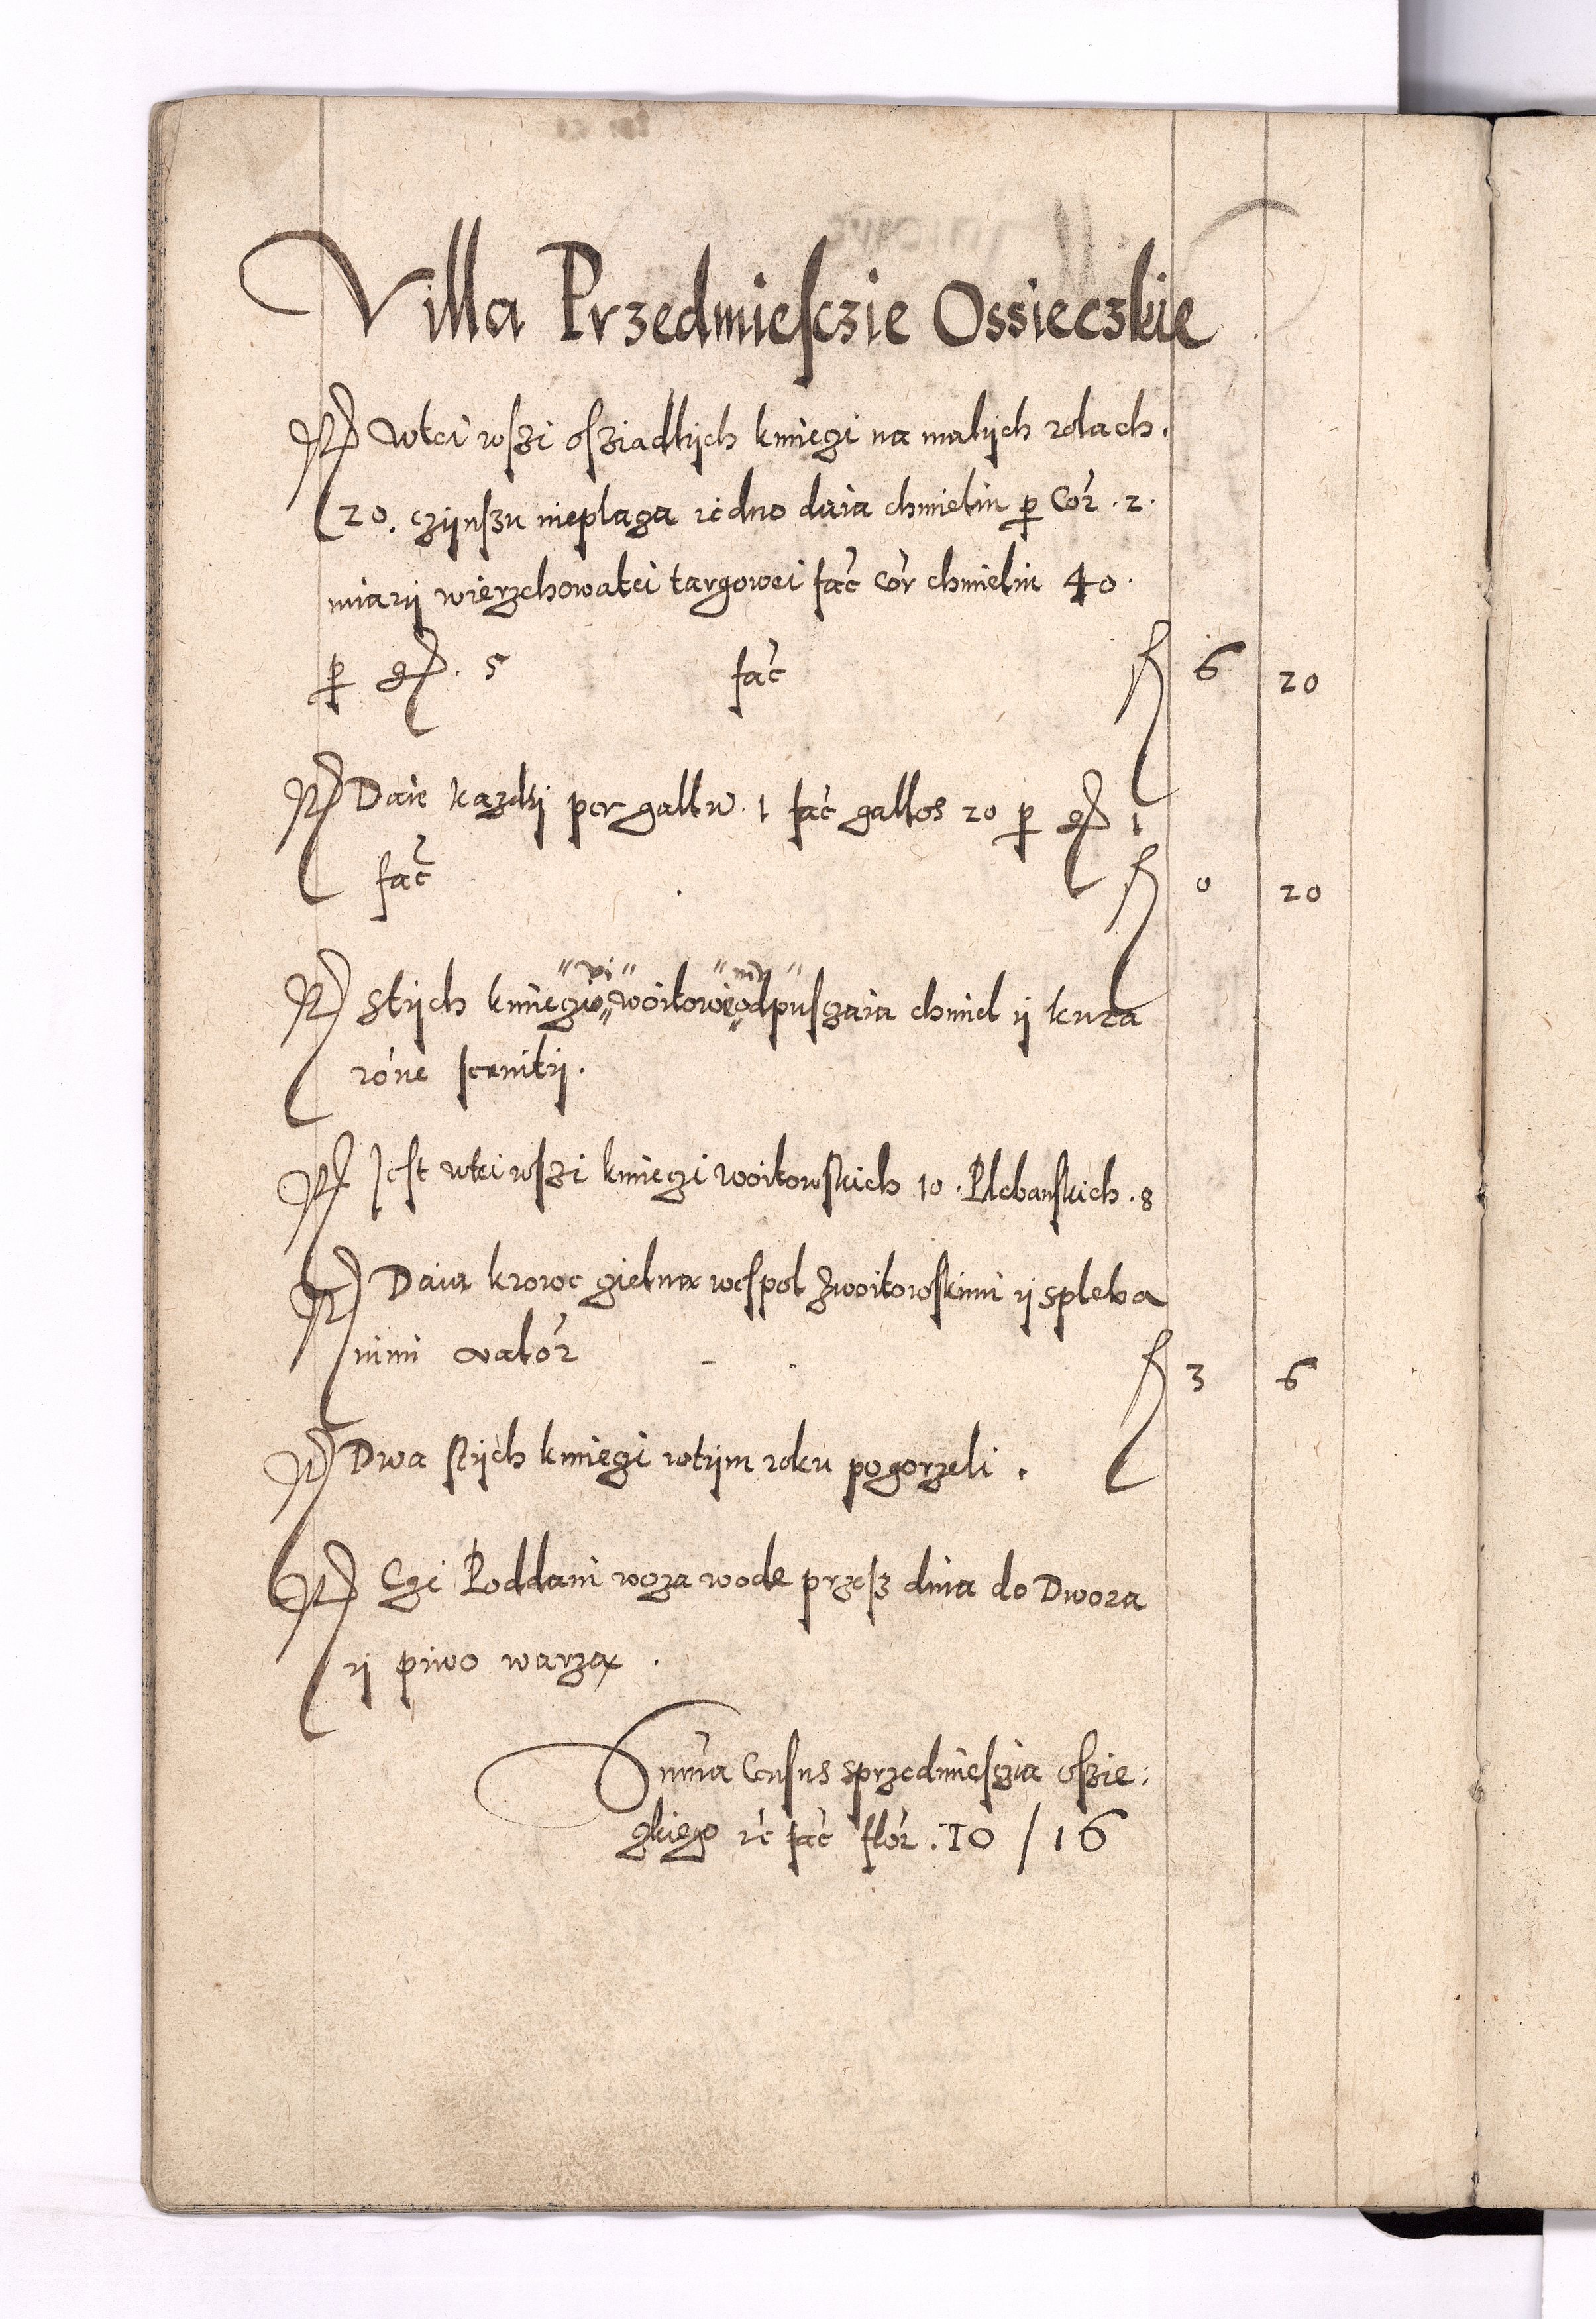 Villa Przedmiesczie Ossieczkie
wtei wszi osziadlÿch kmiegi na malÿch rolach.
20. czÿnszu nieplaga iedno daia chmieliu per Cor. 2.
miarÿ wierzchowatei targowei fac Cor chmieliu 40.
per gr. 5 fac fl 6 20
Daie kazdÿ per gallu. 1 fac gallos 20 per gr 1
fac fl 0 20
Stÿch kmiegi woitowi odpuszaia chmiel ÿ kura
rone
Jest wtei wszi kmiegi woitowskich 10. Plebanskich. 8
Daia krowe gielna wespol zwoitowskimi ÿ spleba
nimi valor fl 3 6
Dwa stÿch kmiegi wtÿm roku pogorzeli.
Czi Poddani woza wode przesz dnia do Dwora
ÿ piwo warza.
Suma Census sprzedmieszia oszie:
zkiego fac flor. 10 / 16